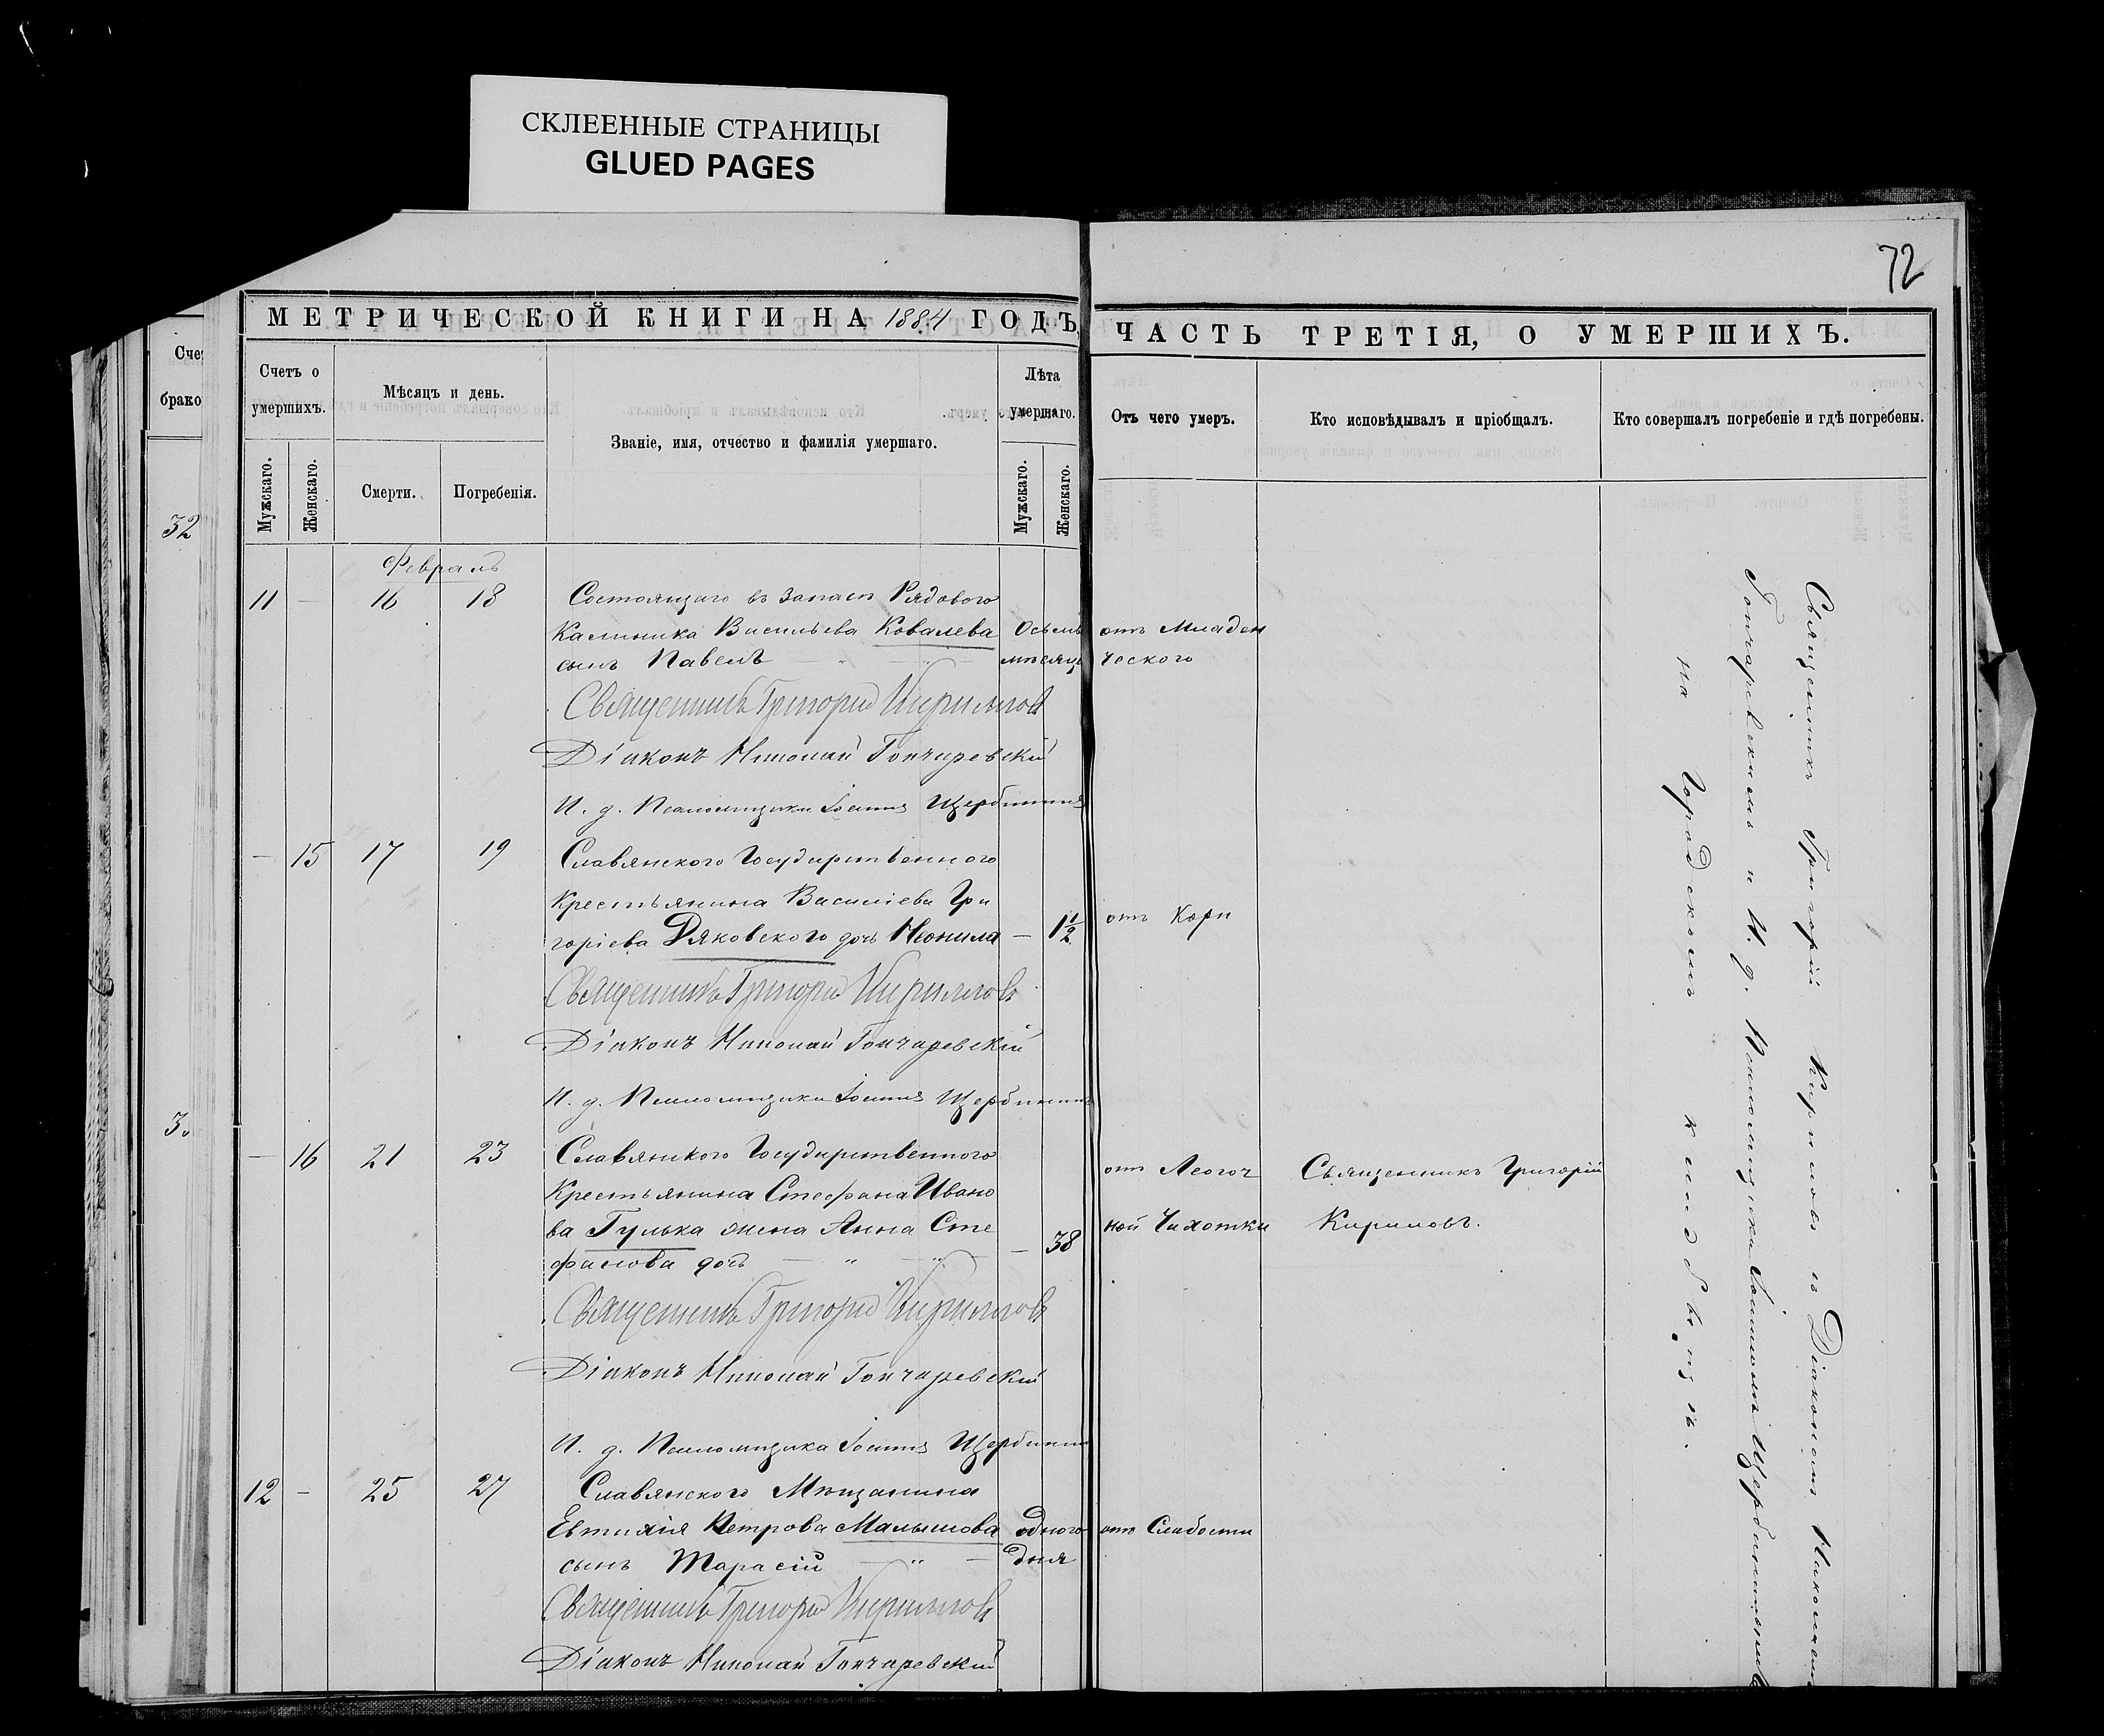 СКЛЕЕННЫЕ СТРАНИЦЫ
GLUED PAGES
72
МЕТРИЧЕСКОЙ КНИГИ НА 1884 ГОДЪ, ЧАСТЬ ТРЕТІЯ, О УМЕРШИХЪ.
Счетъ о умершихъ.
Мѣсяцъ и день.
Званіе, имя, отчество и фамилія умершаго.
Лѣта умершаго.
Отъ чего умеръ.
Кто исповѣдывалъ и пріобщалъ.
Кто совершалъ погребеніе и гдѣ погребены.
Мужскаго.
Женскаго.
Смерти.
Погребенія.
Мужскаго.
Женскаго.
брако
32
Февраль
11 — 16 18 Состоящаго въ запасѣ Рядового
Калиника Васильева Ковалева Осьмь отъ Младен
сынъ Павелъ — " — " — мѣсяц ческого
Священникъ Григорій Кириллов
Діаконъ Николай Гончаревскій
И. д. Псаломщика Іоаннъ Щербинин
— 15 17 19 Славянского Государственного
Крестьянина Василіева Гри
горіева Дяковского дочь Неонила — 1 1/2 отъ Кори
Священникъ Григорій Кириллов
Діаконъ Николай Гончаревскій
И. д. Псаломщика Іоаннъ Щербинин
— 16 21 23 Славянского Государственного отъ Легоч Священникъ Григорій
Крестьянина Стефана Ивано
ва Гулька жена Анна Сте — 38 ной Чахотки Кириловъ.
фанова дочь — " — " —
Священникъ Григорій Кириллов
Діаконъ Николай Гончаревскій
И. д. Псаломщика Іоаннъ Щербинин
12 — 25 27 Славянского Мѣщанина
Евтихія Петрова Малышова одного отъ Слабости
сынъ Тарасій — " — дня
Священникъ Григорій Кириллов
Діаконъ Николай Гончаревскій
Священникъ Григорій Кириловъ съ Діакономъ Николаем
Гончаревскимъ и И. д. Псаломщика Іоанномъ Щербининым
на Городскомъ кладбищѣ.